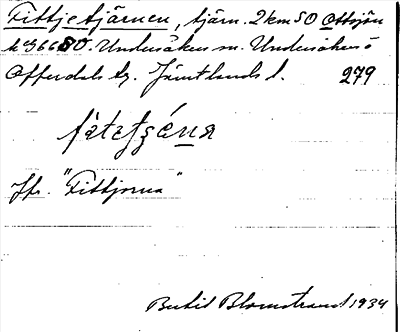 Fittjetjärnen, tjärn. 2 km SO Ottsjön
k 366 SO. Undersåkers sn. Undersåkers o
Offerdals tg. Jämtlands l. 279
Jfr. "Fittjorna"
Bertil Blomstrand 1934